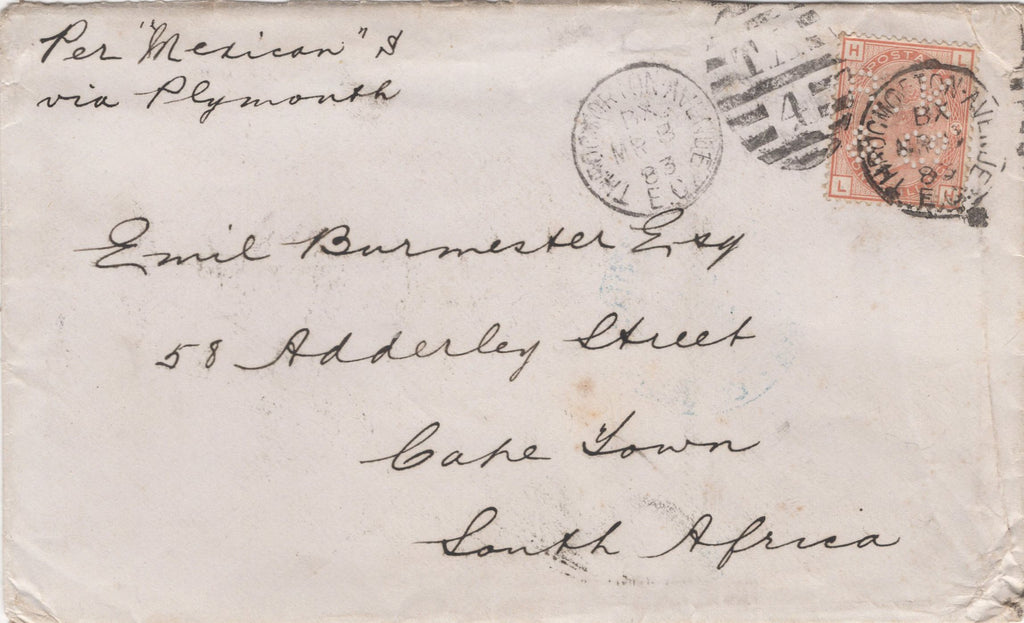 Per "Mexican" &
via Plymouth
THROGMORTON·AVENUE
BX
MR 8
83
E.C
T.A
4
H L
POSTA
L H
THROGMORTON·AVENUE
BX
MR
8
E.C
Emil Burmester Esq
58 Adderley Street
Cape Town
South Africa